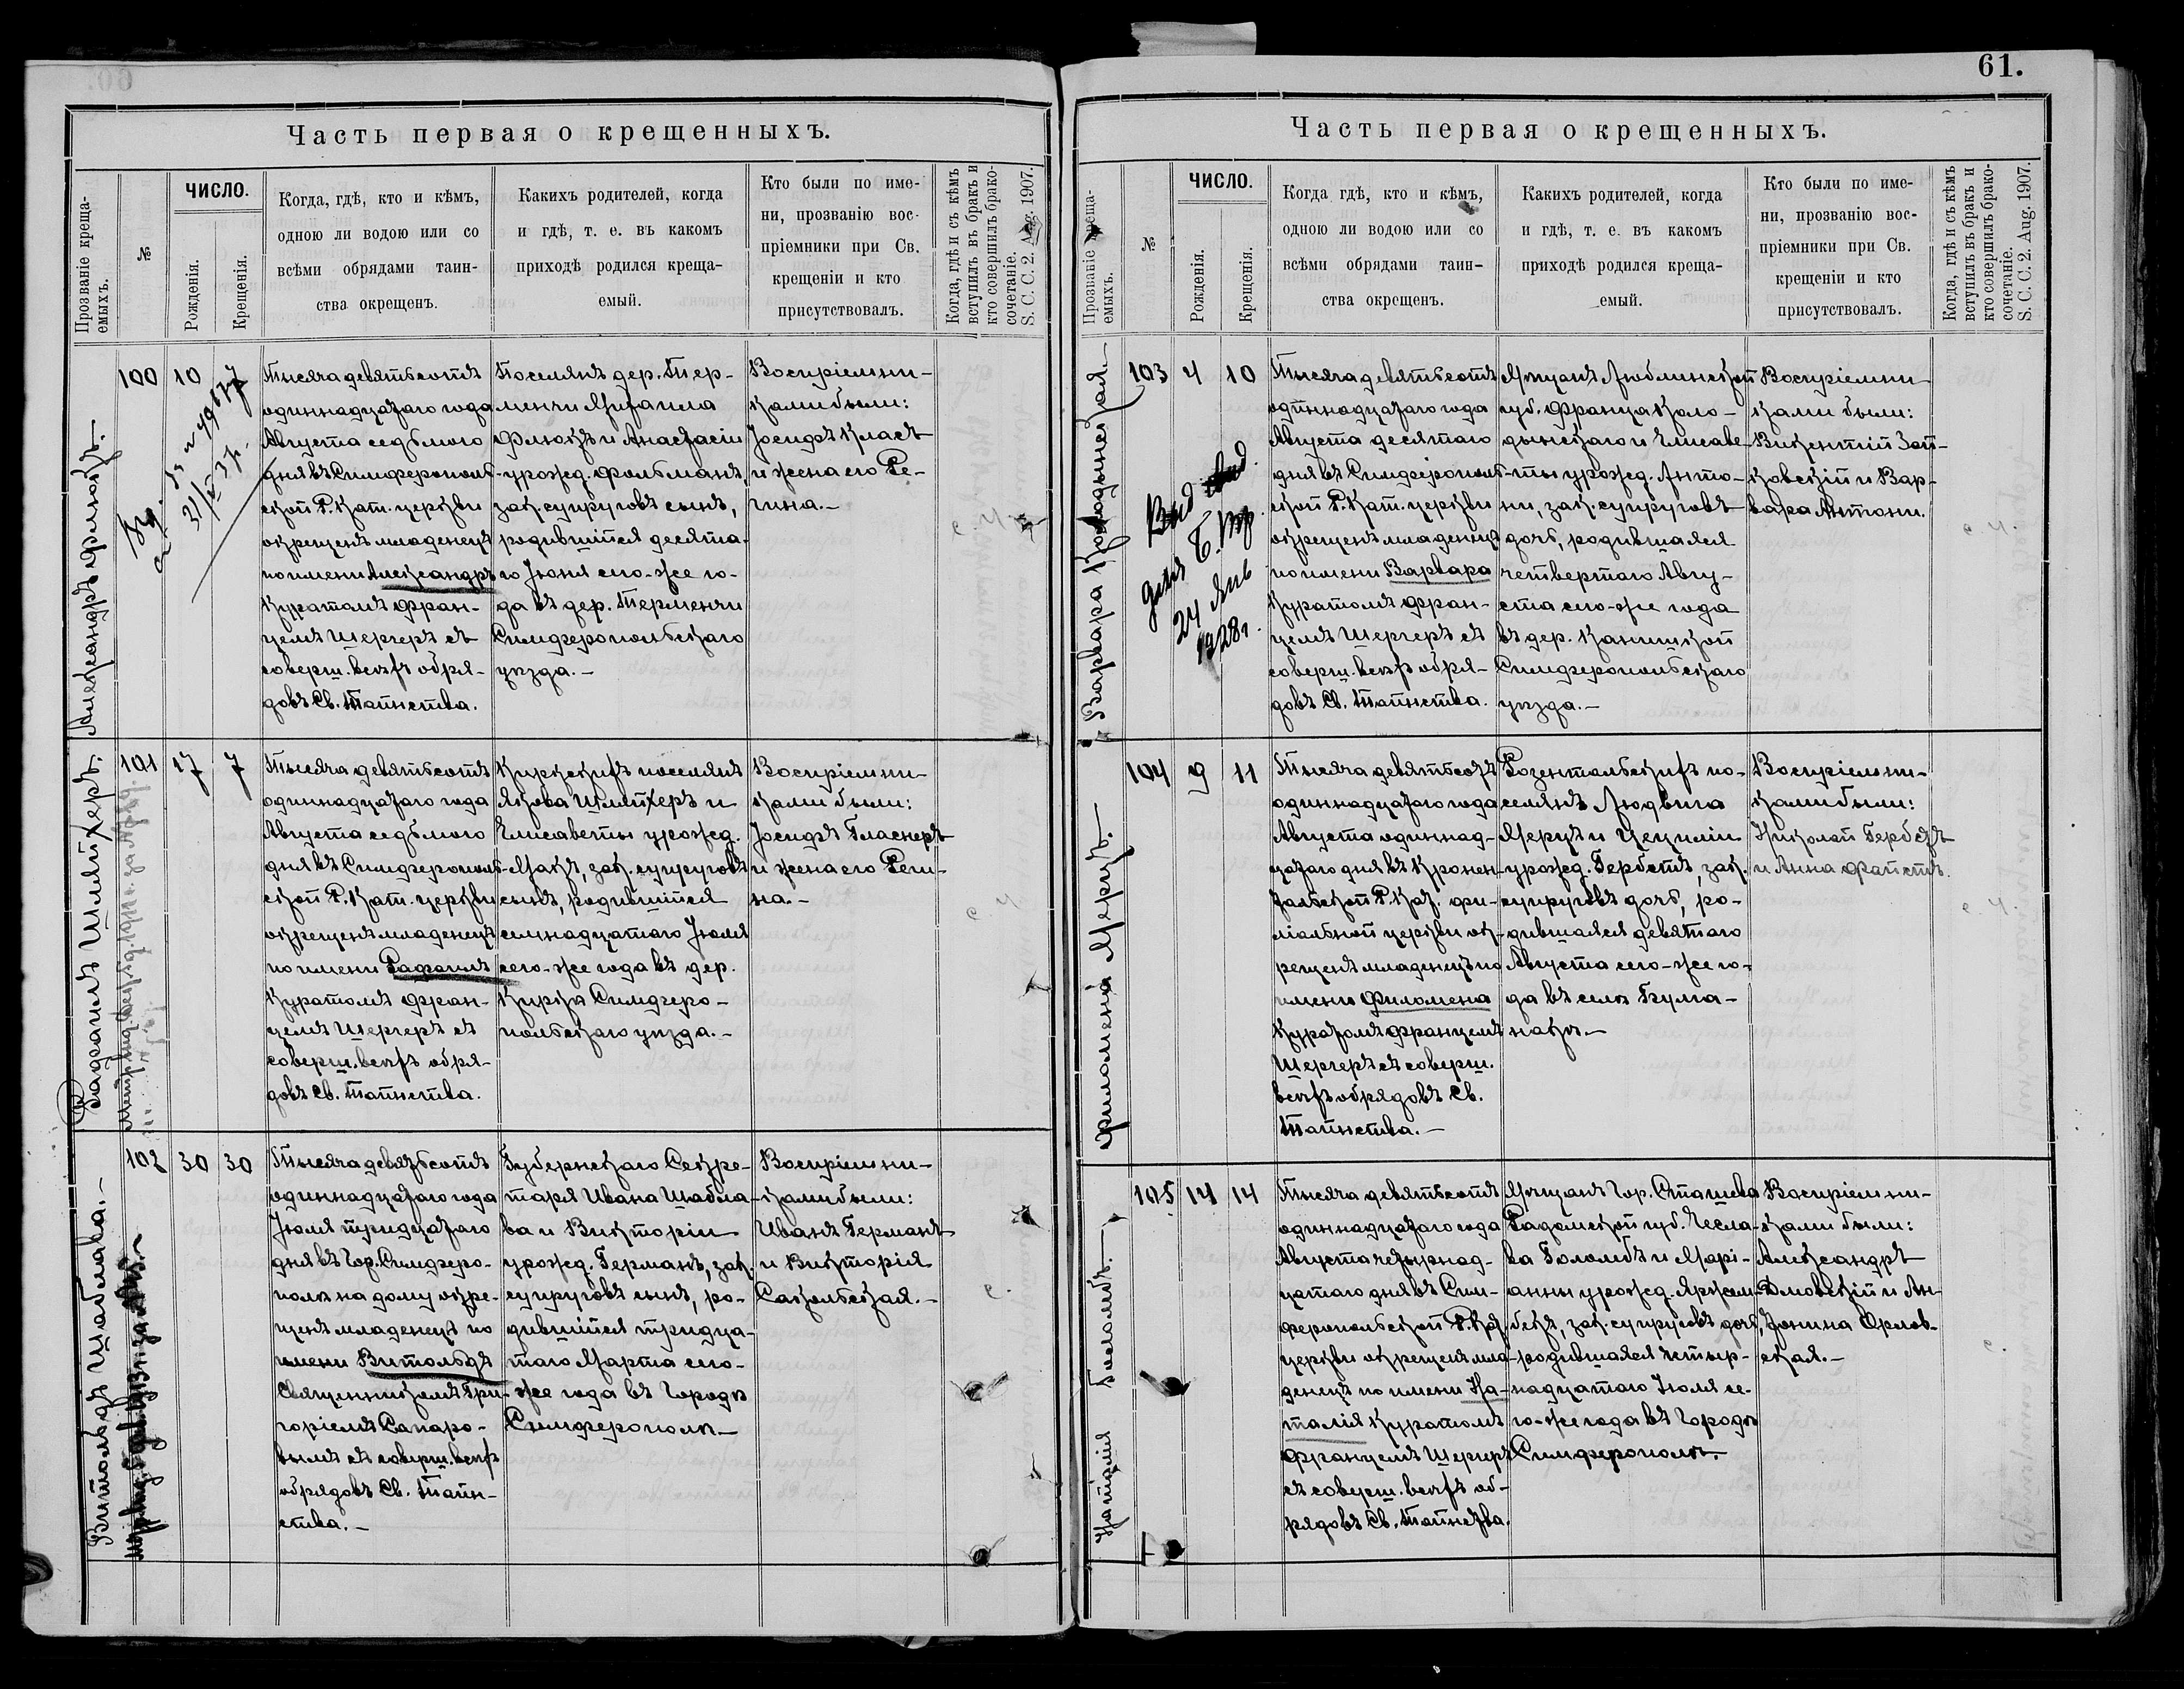 61.
Часть первая о крещенныхъ.
Прозваніе креща-
емыхъ.
№
ЧИСЛО.
Рожденія.
Крещенія.
Когда, гдѣ, кто и кѣмъ,
одною ли водою или со
всѣми обрядами таин-
ства окрещенъ.
Какихъ родителей, когда
и гдѣ, т. е. въ какомъ
приходѣ родился креща-
емый.
Кто были по име-
ни, прозванію вос-
пріемники при Св.
крещеніи и кто
присутствовалъ.
Когда, гдѣ и съ кѣмъ
вступилъ въ бракъ и
кто совершилъ брако-
сочетаніе.
S. C. C. 2. Aug. 1907.
Александръ Флюкъ.
100
10
7
Тысяча девятьсотъ
одиннадцатаго года
Августа седьмого
дня въ Симферополь-
ской Р. Кат. церкви
окрещенъ младенецъ
по имени Александръ
Куратомъ Фран-
цемъ Шергеръ съ
соверш. всѣхъ обря-
довъ Св. Таинства.
Поселянъ дер. Тер-
менчи Михаила
Флюкъ и Анастасіи
урожд. Фольманъ,
зак. супруговъ сынъ,
родившійся десята-
го Іюня сего-же го-
да въ дер. Терменчи
Симферопольскаго
уѣзда.-
Воспріемни-
ками были:
Іосифъ Класъ
и жена его Ре-
гина.-
Рафаилъ Шляйхеръ.
101
17
7
Тысяча девятьсотъ
одиннадцатаго года
Августа седьмого
дня въ Симферополь-
ской Р. Кат. церкви
окрещенъ младенецъ
по имени Рафаилъ
Куратомъ Фран-
цемъ Шергеръ съ
соверш. всѣхъ обря-
довъ Св. Таинства.
Киркскихъ поселянъ
Якова Шляйхеръ и
Елисаветы урожд.
Макъ, зак. супруговъ
сынъ, родившійся
семнадцатаго Іюля
сего-же года въ дер.
Киркъ Симферо-
польскаго уѣзда.-
Воспріемни-
ками были:
Іосифъ Гласнеръ
и жена его Реги-
на.-
Витольдъ Шаблава.-
102
30
30
Тысяча девятьсотъ
одиннадцатаго года
Іюля тридцатаго
дня въ гор. Симферо-
полѣ на дому окре-
щенъ младенецъ по
имени Витольдъ
Священникомъ Гри-
горіемъ Сапаро-
вымъ съ соверш. всѣхъ
обрядовъ Св. Таин-
ства.-
Губернскаго Секре-
таря Ивана Шабла-
ва и Викторіи
урожд. Германъ, зак.
супруговъ сынъ, ро-
дившійся тридца-
таго Марта сего-
же года въ городѣ
Симферополѣ-
Воспріемни-
ками были:
Иванъ Германъ
и Викторія
Сакольская.-
Часть первая о крещенныхъ.
Прозваніе креща-
емыхъ.
№
ЧИСЛО.
Рожденія.
Крещенія.
Когда гдѣ, кто и кѣмъ,
одною ли водою или со
всѣми обрядами таин-
ства окрещенъ.
Какихъ родителей, когда
и гдѣ, т. е. въ какомъ
приходѣ родился креща-
емый.
Кто были по име-
ни, прозванію вос-
пріемники при Св.
крещеніи и кто
присутствовалъ.
Когда, гдѣ и съ кѣмъ
вступилъ въ бракъ и
кто совершилъ брако-
сочетаніе.
S. C. C. 2. Aug. 1907.
Варвара Колодынская-
103
4
10
24 Янв
1928г.
Тысяча девятьсотъ
одиннадцатаго года
Августа десятаго
дня въ Симферополь-
ской Р. Кат. церкви
окрещенъ младенецъ
по имени Варвара
Куратомъ Фран-
цемъ Шергеръ съ
соверш. всѣхъ обря-
довъ Св. Таинства.
Мѣщанъ Люблинской
губ. Франца Коло-
дынскаго и Елисаве-
ты урожд. Анто-
ни, зак. супруговъ
дочь, родившаяся
четвертаго Авгу-
ста сего-же года
въ дер.
Симферопольскаго
уѣзда.-
Воспріемни-
ками были:
Викентій Зай-
ковскій и Вар-
вара Антони.
Филомена Мерцъ.-
104
9
11
Тысяча девятьсотъ
одиннадцатаго года
Августа одиннад-
цатаго дня въ Кронен-
тальской Р. Кат. фи-
ліальной церкви ок-
рещенъ младенецъ по
имени Филомена
Куратомъ Францемъ
Шергеръ съ соверш.
всѣхъ обрядовъ Св.
Таинства.-
Розентальскихъ по-
селянъ Людвига
Мерцъ и Цециліи
урожд. Гербстъ, зак.
супруговъ дочь, ро-
дившаяся девятаго
Августа сего-же го-
да въ селѣ Бума-
накъ.-
Воспріемни-
ками были:
Николай Гербстъ
и Анна Фаистъ.
Наталія Боломбъ.-
105
14
14
Тысяча девятьсотъ
одиннадцатаго года
Августа четырнад-
цатаго дня въ Сим-
феропольской Р. Кат.
церкви окрещенъ мла-
денецъ по имени На-
талія Куратомъ
Францемъ Шергеръ
съ соверш. всѣхъ об-
рядовъ Св. Таинства.
Мѣщанъ гор. Сташева
Радомской губ. Чесла-
ва Боломбъ и Марі-
анны урожд. Яржем-
бекъ, зак. супруговъ дочь,
родившаяся четыр-
надцатаго Іюля се-
го-же года въ городѣ
Симферополѣ.
Воспріемни-
ками были:
Александръ
Дмовскій и Ан-
тонина Орлов-
ская.-